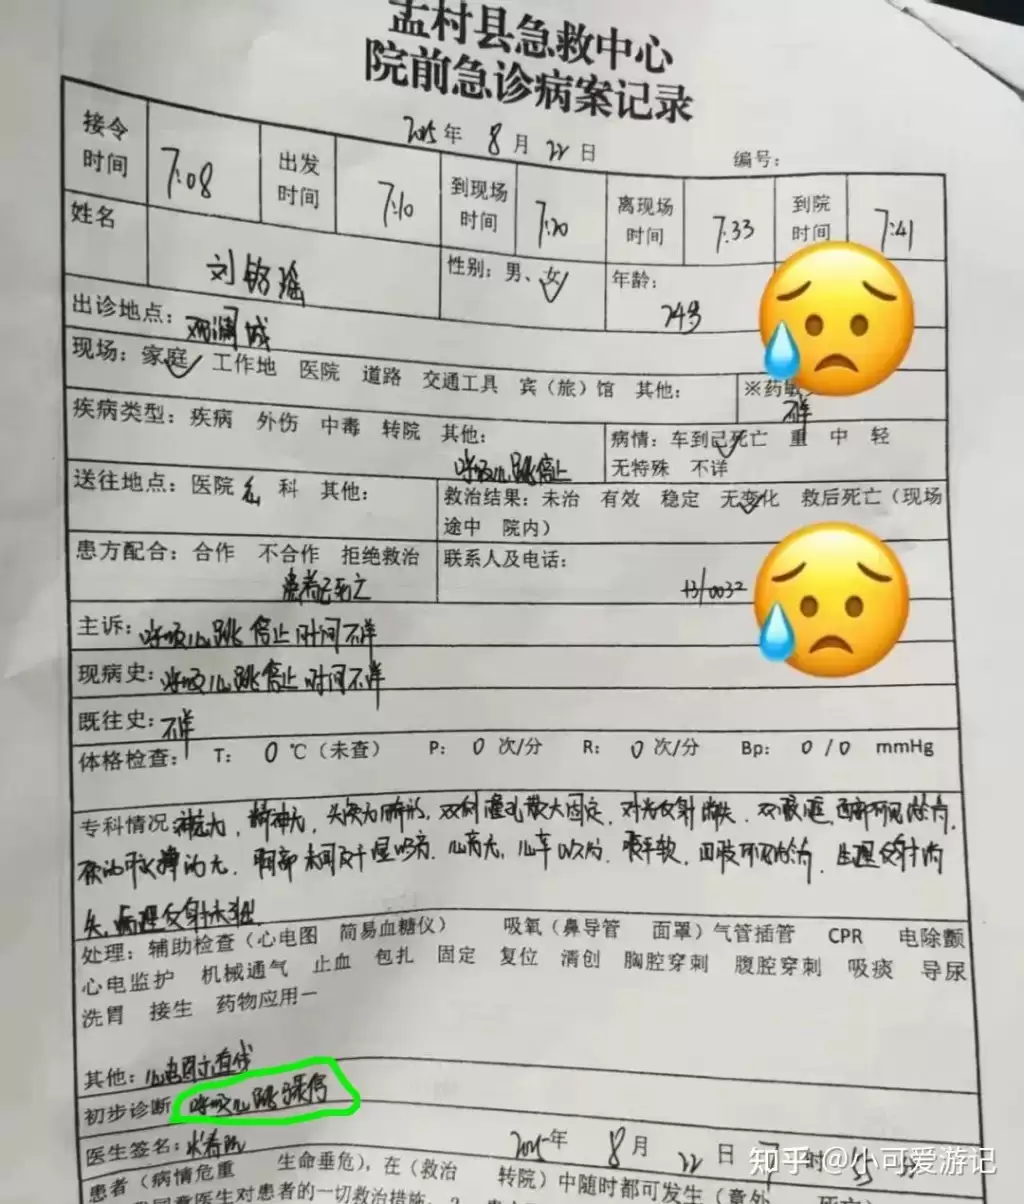 孟村县急救中心
院前急诊病案记录
2025年 8月 22日 编号：
接令时间 7:08 出发时间 7:10 到现场时间 7:20 离现场时间 7:33 到院时间 7:41
姓名 刘 瑶 性别：男、女✓ 年龄： 24岁
出诊地点： 观澜城
现场：家庭✓ 工作地 医院 道路 交通工具 宾（旅）馆 其他： ※药敏 不详
疾病类型：疾病 外伤 中毒 转院 其他： 呼吸心跳停止 病情：车到已死亡✓ 重 中 轻
无特殊 不详
送往地点：医院 科 其他： 救治结果：未治 有效 稳定 无变化✓ 救后死亡（现场
途中 院内）
患方配合：合作 不合作 拒绝救治 患者已死亡 联系人及电话：
主诉：呼吸心跳停止时间不详
现病史：呼吸心跳停止时间不详
既往史：不详
体格检查： T： 0 ℃（未查） P： 0 次/分 R： 0 次/分 Bp： 0 / 0 mmHg
专科情况 神志无，精神无，头颅无畸形，双侧瞳孔散大固定，对光反射消失，
心音无，心率0次/分，腹平软，四肢 生理反射消
失，病理反射未引出
处理：辅助检查（心电图 简易血糖仪） 吸氧（鼻导管 面罩）气管插管 CPR 电除颤
心电监护 机械通气 止血 包扎 固定 复位 清创 胸腔穿刺 腹腔穿刺 吸痰 导尿
洗胃 接生 药物应用一
其他：心电图示直线
初步诊断 呼吸心跳骤停
医生签名： 2025年 8月 22日
患者（病情危重 生命垂危），在（救治 转院）中随时都可发生（意外
医生对患者的一切救治措施。
知乎 @小可爱游记